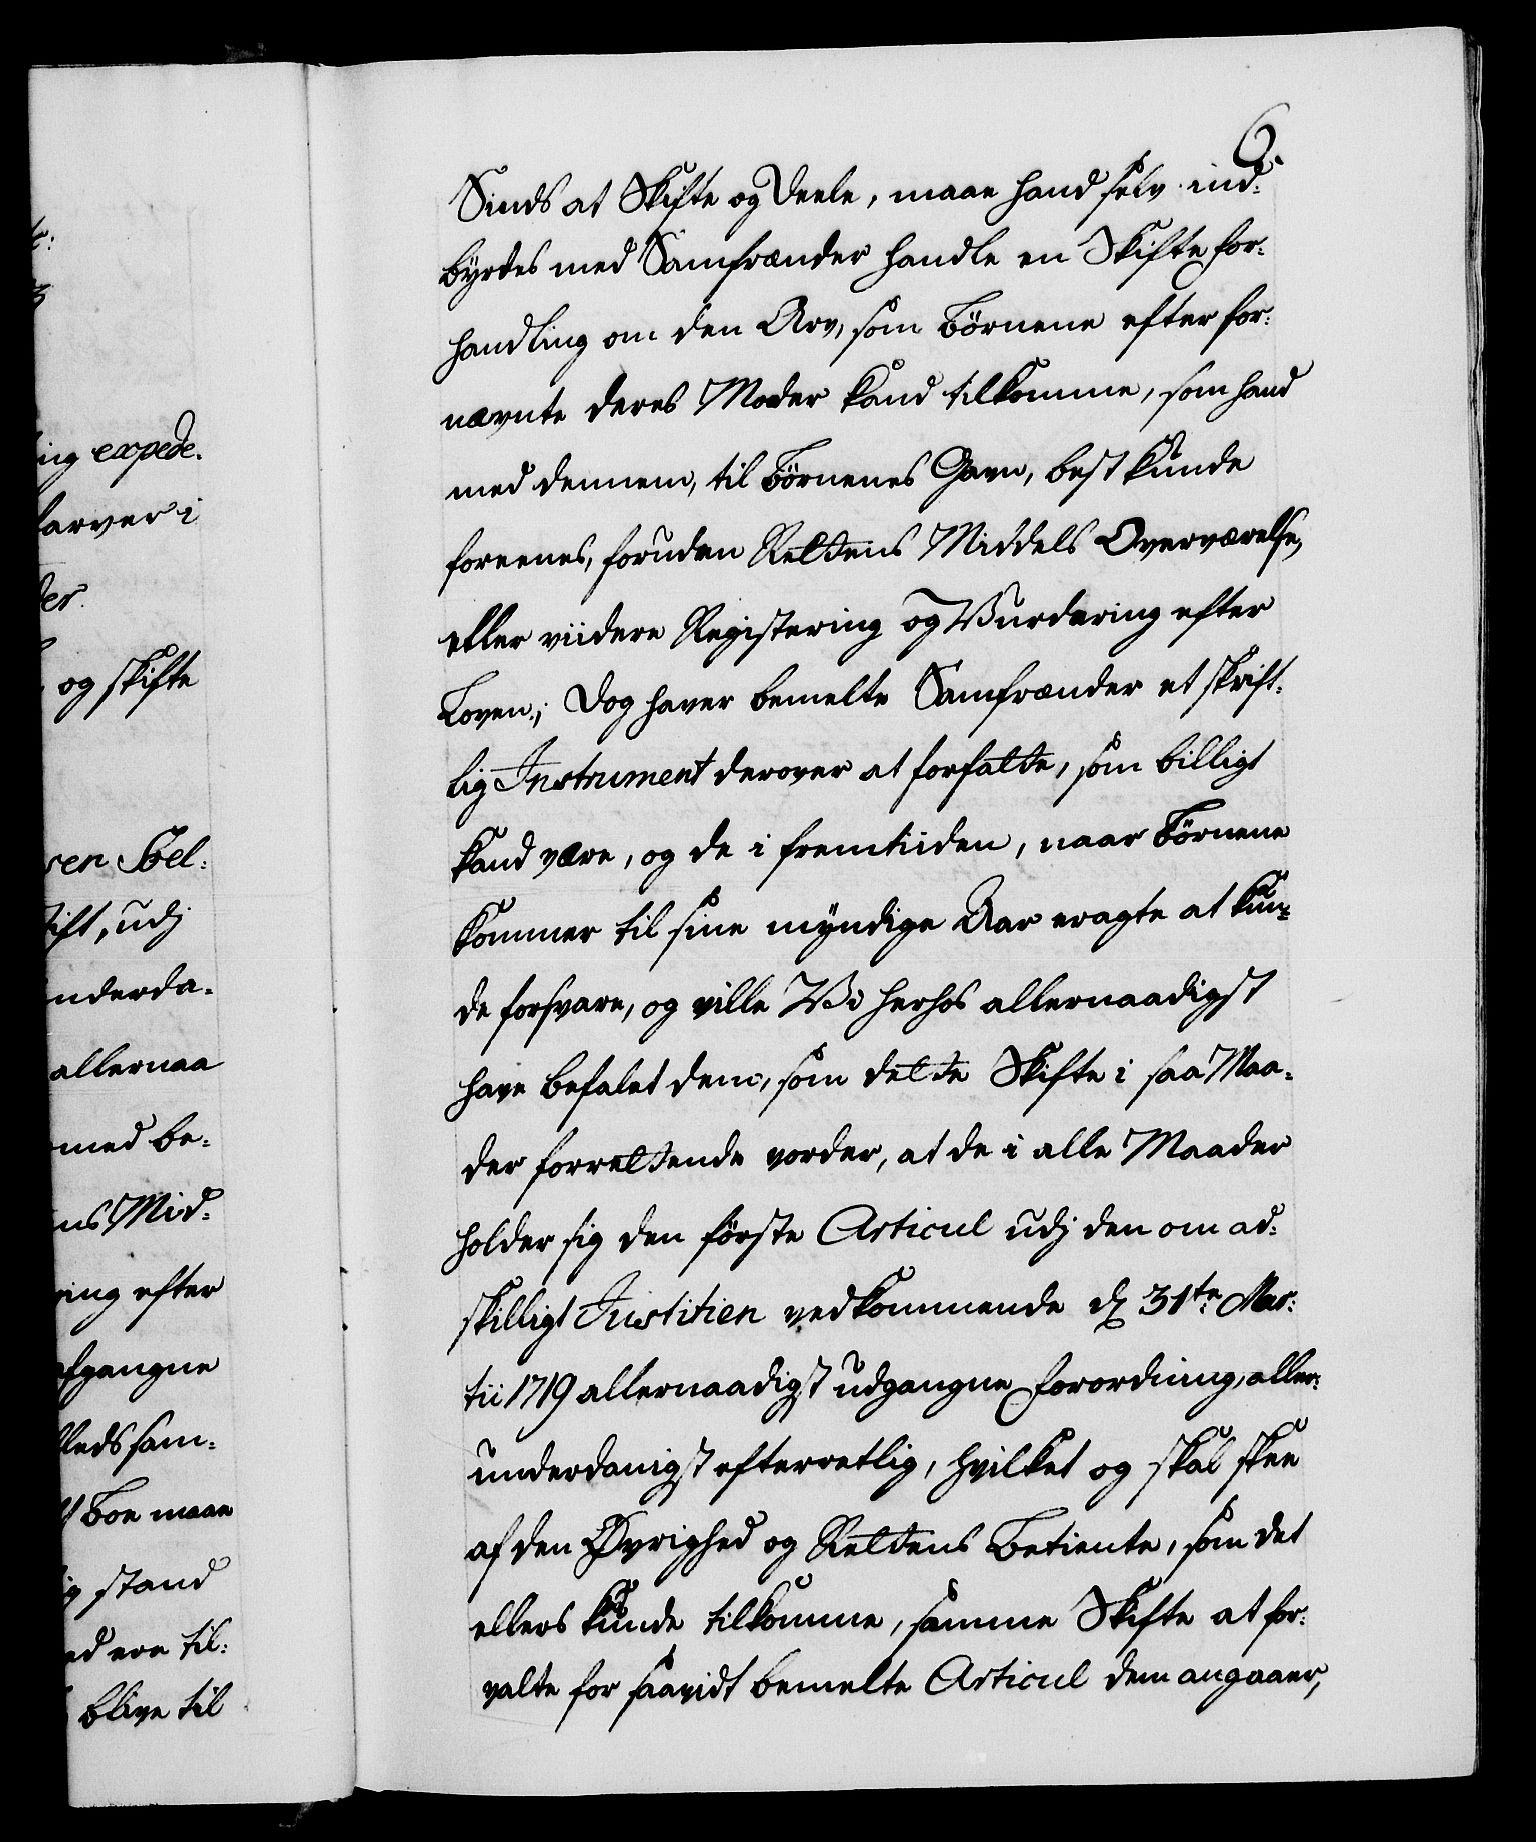 6.
Sinds at Skifte og Deele, maae hand selv ind-
byrdes med Samfrænder handle en Skifte for-
handling om den Arv, som Börnene efter for-
nævnte deres Moder kand tilkomme, som hand
med dennem, til Börnenes Gavn, best kunde
foreenes, foruden Rettens Middels Overværelse,
eller viidere Registering og Vurdering efter
Loven; Dog haver bemelte Samfrænder et skrift-
lig Instrument derover at forfatte, som billigt
kand være, og de i fremtiiden, naar Börnene
kommer til sine myndige Aar eragte at kun-
de forsvare, og ville Vi herhos allernaadigst
have befalet dem, som dette Skifte i saa Maa-
der forrettende vorder, at de i alle Maader
holder sig den förste Articul udj den om ad-
skilligt Justitien vedkommende d 31te Mar-
tii 1719 allernaadigst udgangne Forordning, aller-
underdanigst efterretlig, hvilket og skal skee
af den Øvrighed og Rettens Betiente, som det
ellers kunde tilkomme, samme Skifte at for-
valte for saavidt bemelte Articul dem angaaer,
ing expede.
arver i
der.
og skifte
sen Soel-
ift, udj
nderda-
allernaa
med be-
ns Mid-
ring efter
afgangne
leds sam-
Boe maae
ig stand
ed ere til-
blive til